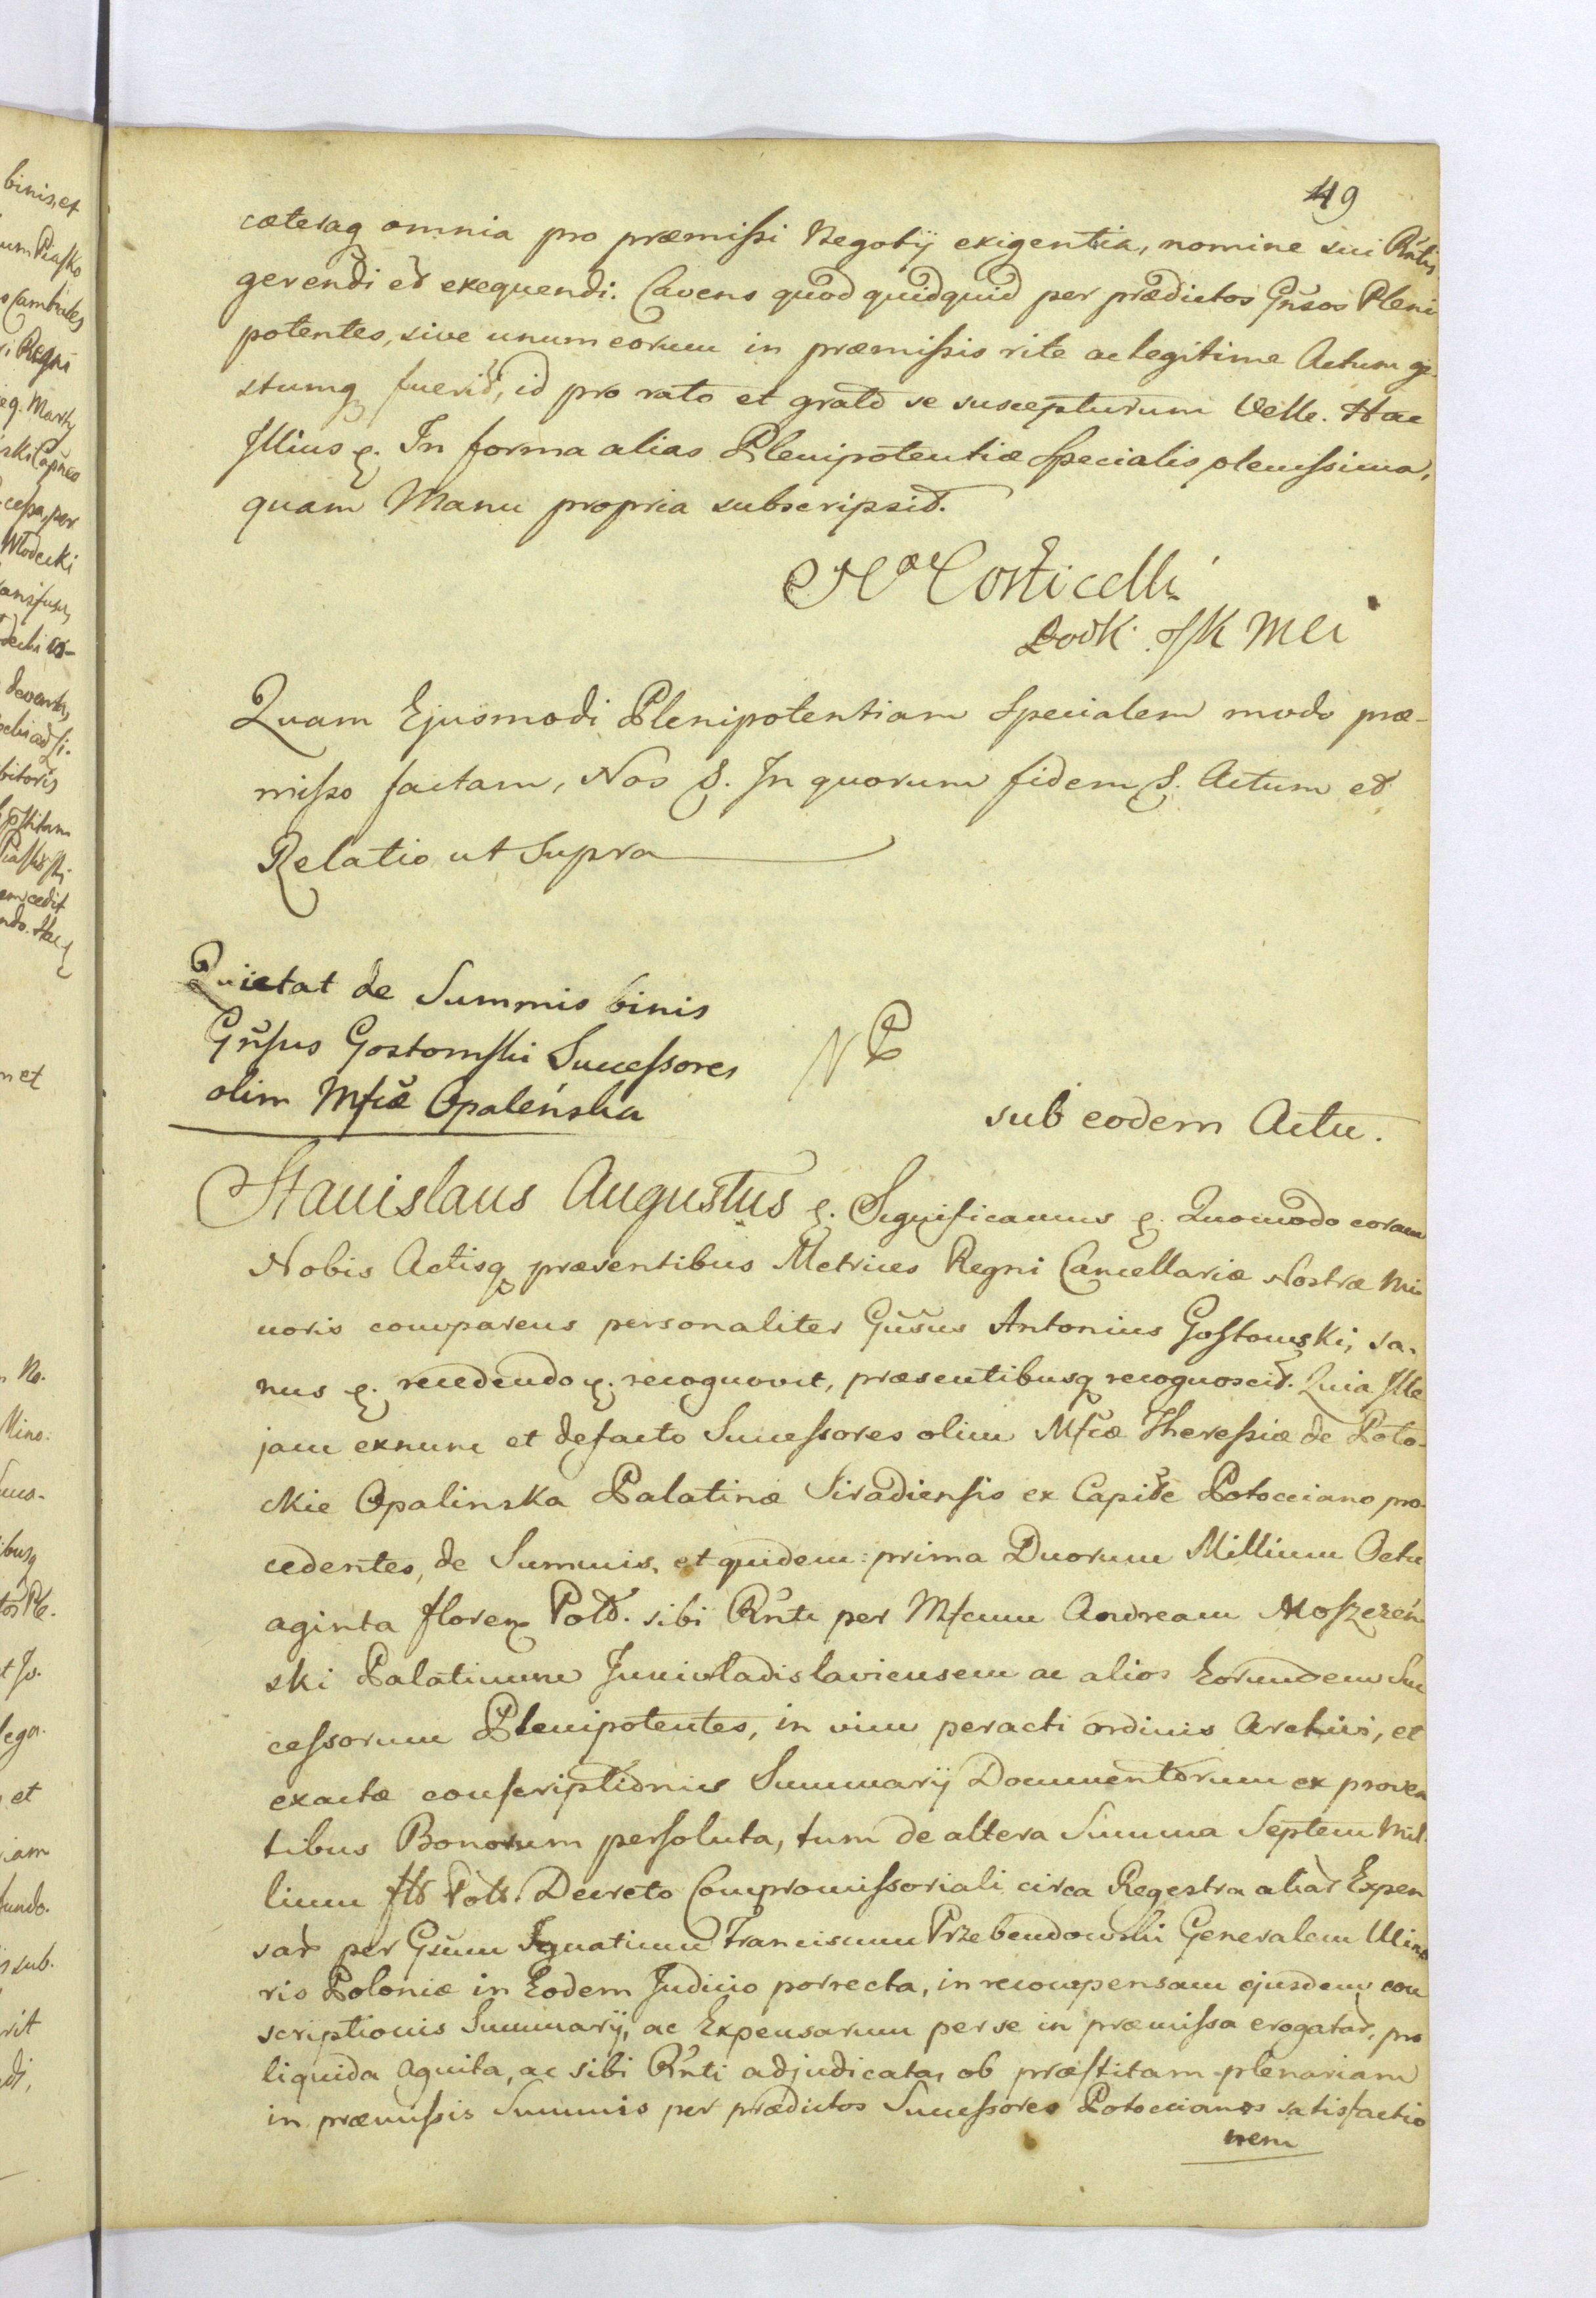 49
cæteraq omnia pro præmissi Negotÿ exigentia, nomine sui Rñtis
gerendi et exequendi. Cavens quod quidquid per prædictos Gñsos Pleni
potentes, sive unum eorum in præmissis rite ac legitime Actum ge-
stumq fuerit, id pro rato et grato se suscepturum Velle. Hac
Illius &. In forma alias Plenipotentiæ Specialis plenissima,
quam Manu propria subscripsit.
Corticelli
JK Mci
Quam Ejusmodi Plenipotentiam Specialem modo præ-
misso factam, Nos &. In quorum fidem &. Actum et
Relatio ut Supra
Quietat de Summis binis
Gñsus Gostomski Successores
olim Mfcæ Opaleńska
sub eodem Actu.
Stanislaus Augustus &. Significamus &. Quomodo coram
Nobis Actisq præsentibus Metrices Regni Cancellariæ Nostræ Mi-
noris comparens personaliter Gñsus Antonius Gostomski, sa-
nus &. recedendo &. recognovit, præsentibusq recognoscit. Quia Ille
jam exnunc et defacto Successores olim Mfcæ Theressiæ de Poto-
ckie Opalinska Palatinæ Siradiensis ex Capite Potocciano pro-
cedentes, de Summis, et quidem: prima Duorum Millium Octu
aginta floren Poll. sibi Rñti per Mfcum Andream Moszczeń
ski Palatinum Juniwladislaviensem ac alios Eorundem Suc
cessorum Plenipotentes, in vim peracti ordinis Archivi, et
exactæ conscriptionis Summarÿ Documentorum ex proven
tibus Bonorum persoluta, tum de altera Summa Septem Mil-
lium fls Poll. Decreto Compromissoriali circa Regestra aliar Expen
sar per Gñum Ignatium Franciscum Przebendowski Generalem Mino
ris Poloniæ in Eodem Judicio porrecta, in recompensam ejusdem con
scriptionis Summarÿ, ac Expensarum per se in præmissa erogatar, pro
liquida agnita, ac sibi Rñti adjudicata, ob præstitam plenariam
in præmissis Summis per prædictos Successores Potoccianos satisfactio
nem